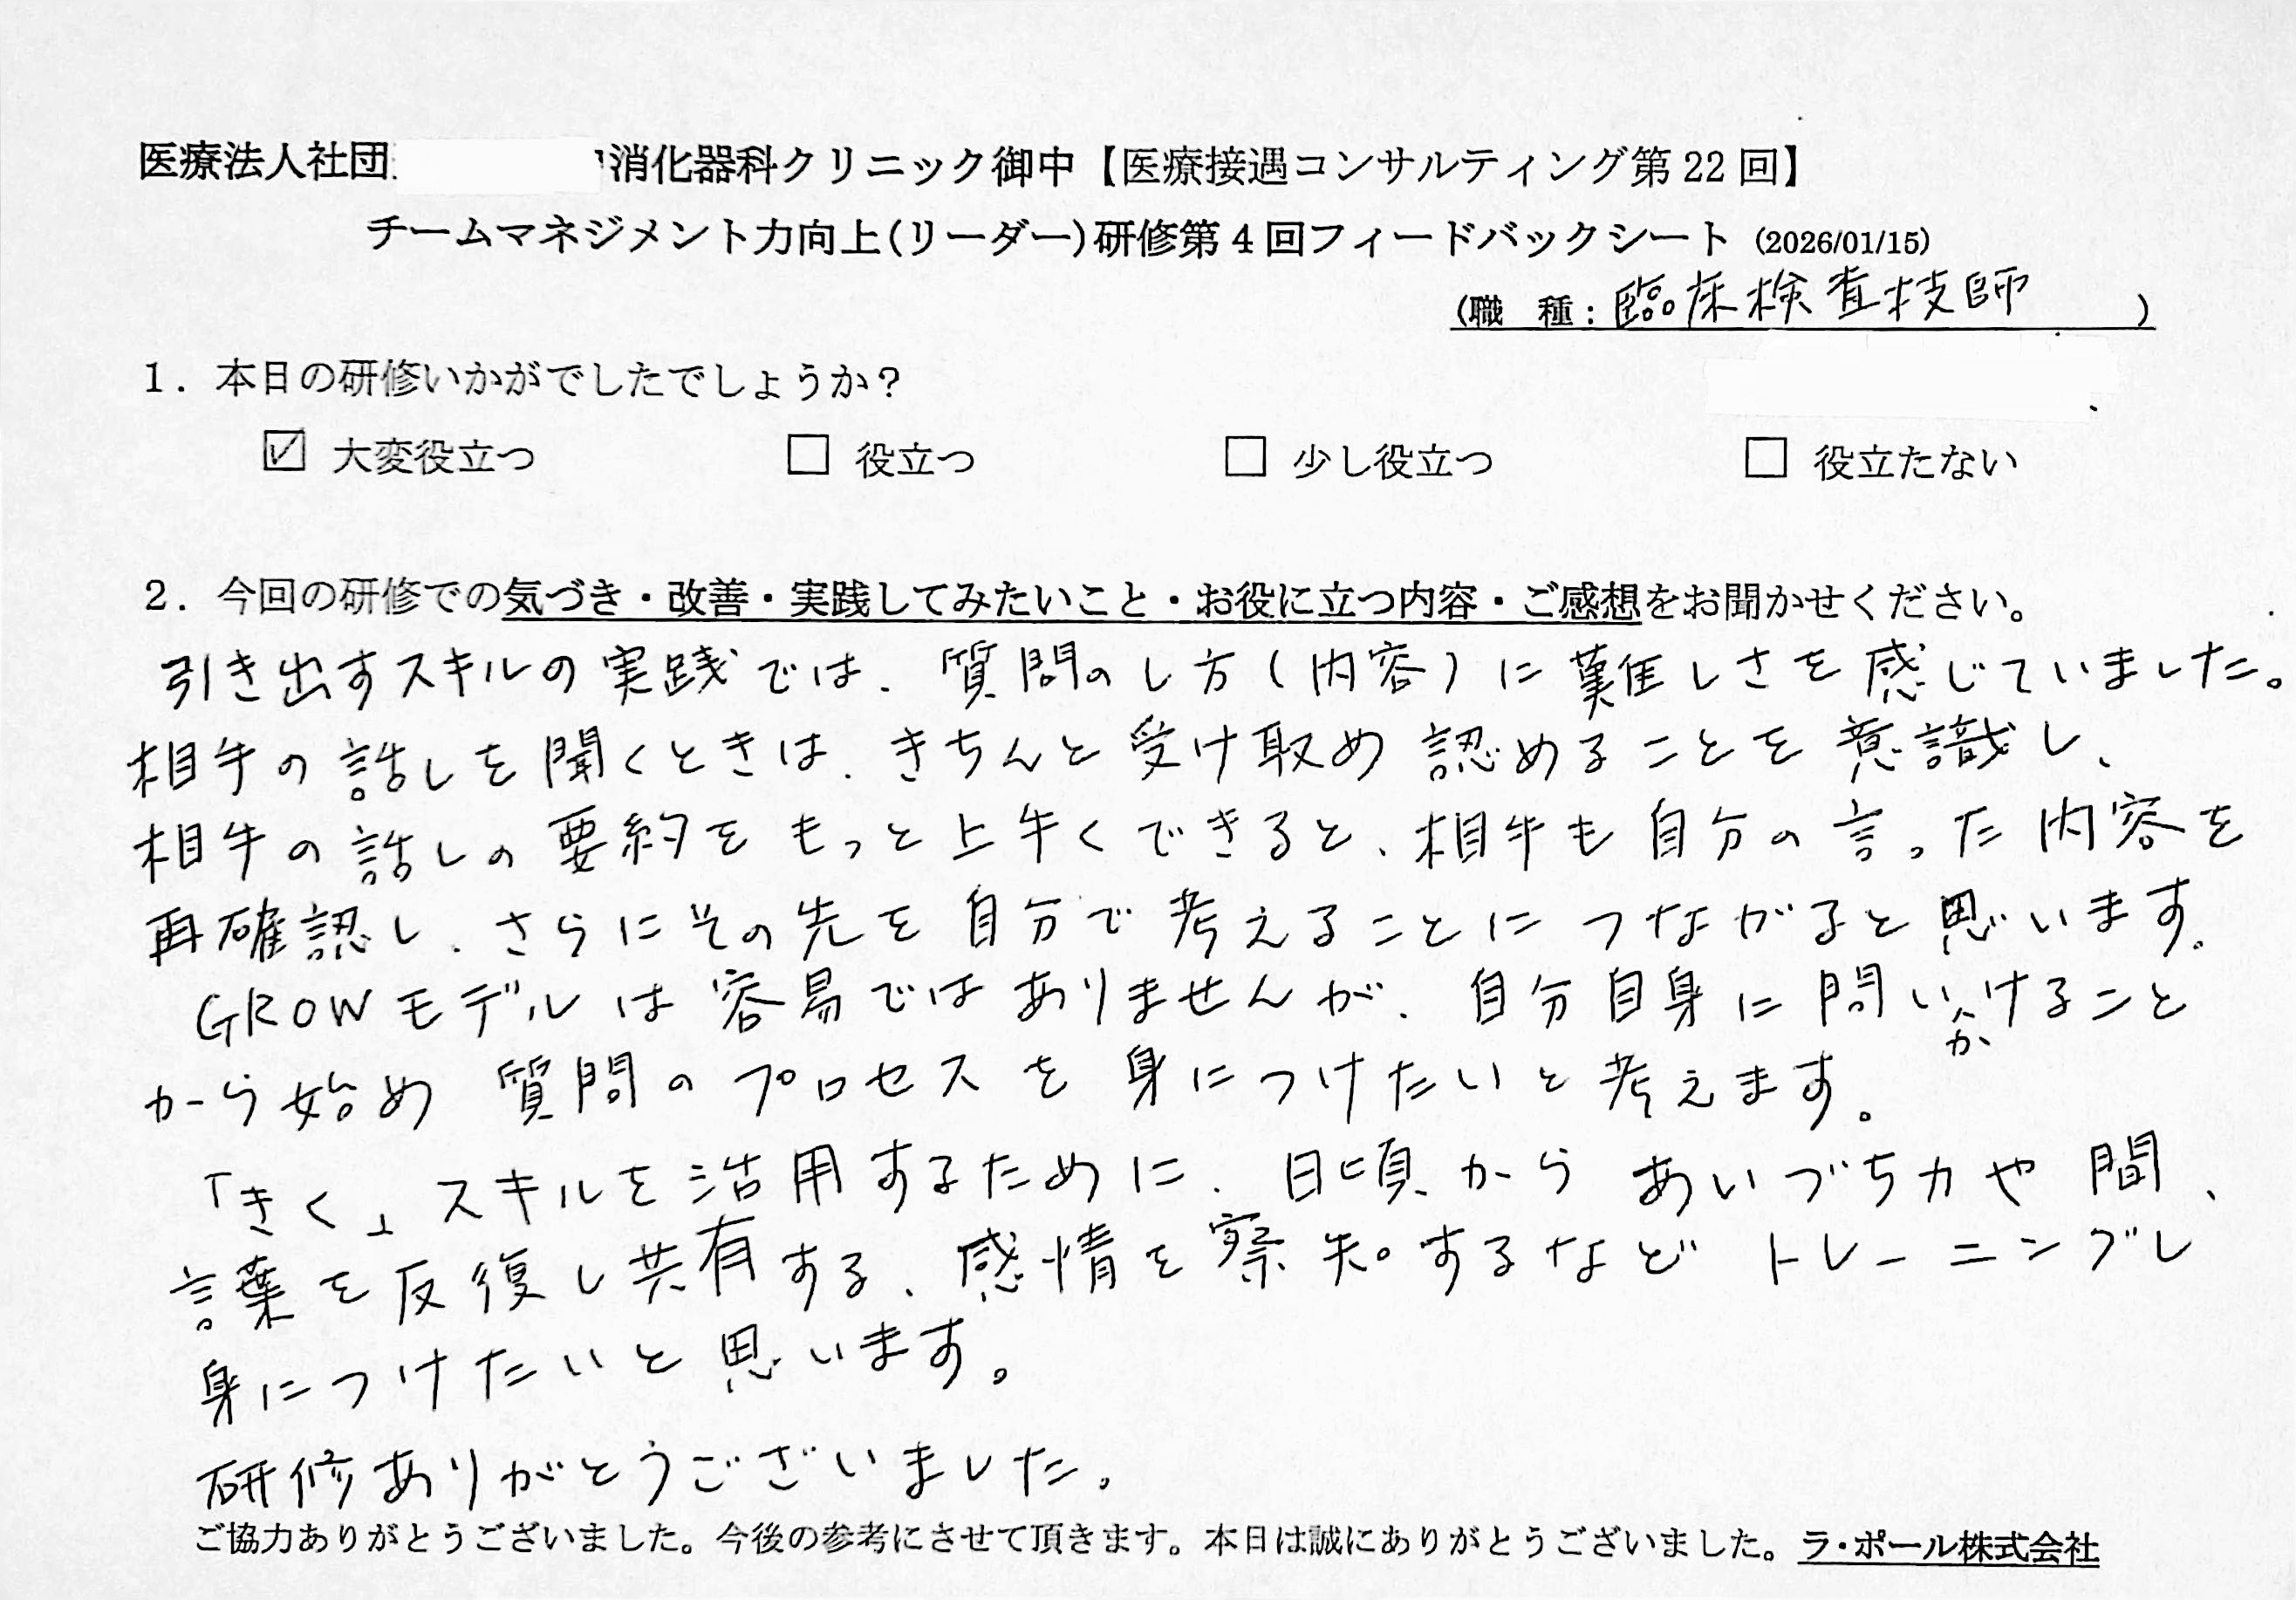 医療法人社団 消化器科クリニック御中【医療接遇コンサルティング第22回】
チームマネジメント力向上(リーダー)研修第4回フィードバックシート (2026/01/15)
(職 種:臨床検査技師 )
1．本日の研修いかがでしたでしょうか？
☑ 大変役立つ □ 役立つ □ 少し役立つ □ 役立たない
2．今回の研修での気づき・改善・実践してみたいこと・お役に立つ内容・ご感想をお聞かせください。
引き出すスキルの実践では、質問のし方(内容)に難しさを感じていました。
相手の話しを聞くときは、きちんと受け取め認めることを意識し、
相手の話しの要約をもっと上手くできると、相手も自分の言った内容を
再確認し、さらにその先を自分で考えることにつながると思います。
GROWモデルは容易ではありませんが、自分自身に問いかけること
から始め質問のプロセスを身につけたいと考えます。
「きく」スキルを活用するために、日頃からあいづち力や間、
言葉を反復し共有する、感情を察知するなどトレーニングし
身につけたいと思います。
研修ありがとうございました。
ご協力ありがとうございました。今後の参考にさせて頂きます。本日は誠にありがとうございました。ラ・ポール株式会社